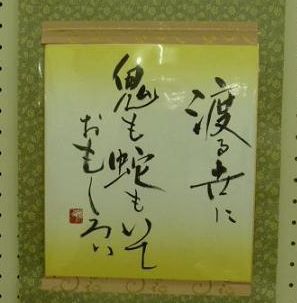 渡る世に
鬼も蛇もいて
おもしろい